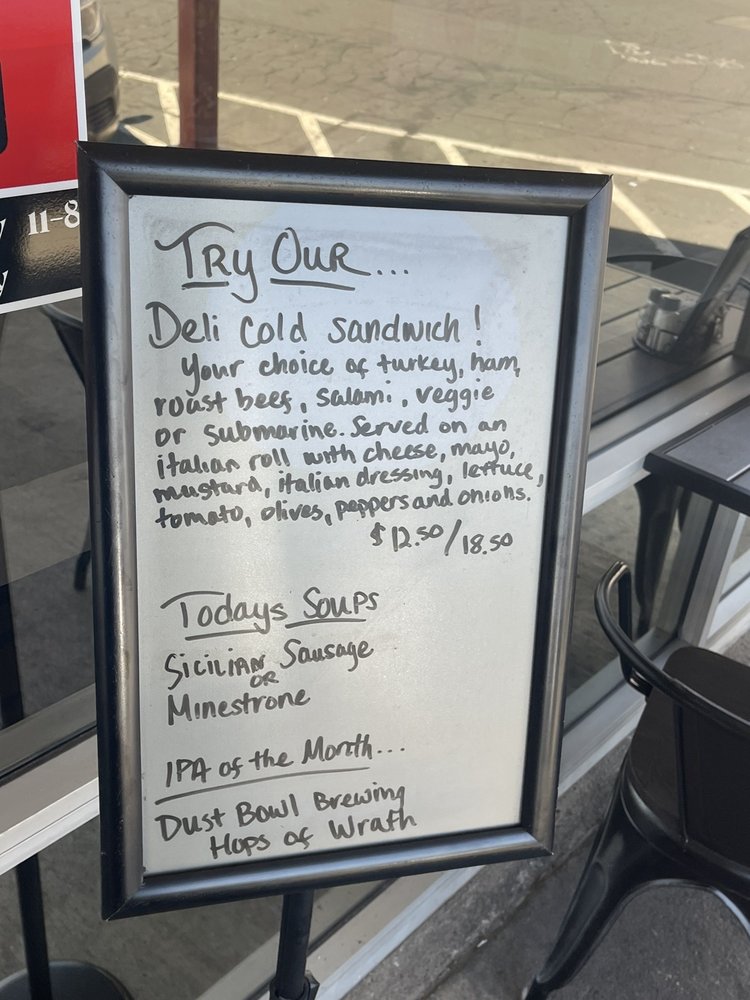 11-8
Try Our...
Deli Cold Sandwich!
Your choice of turkey, ham,
roast beef, salami, veggie
or submarine. Served on an
italian roll with cheese, mayo,
mustard, italian dressing, lettuce,
tomato, olives, peppers and onions.
$12.50/18.50
Todays Soups
Sicilian Sausage
or
Minestrone
IPA of the Month...
Dust Bowl Brewing
Hops of Wrath